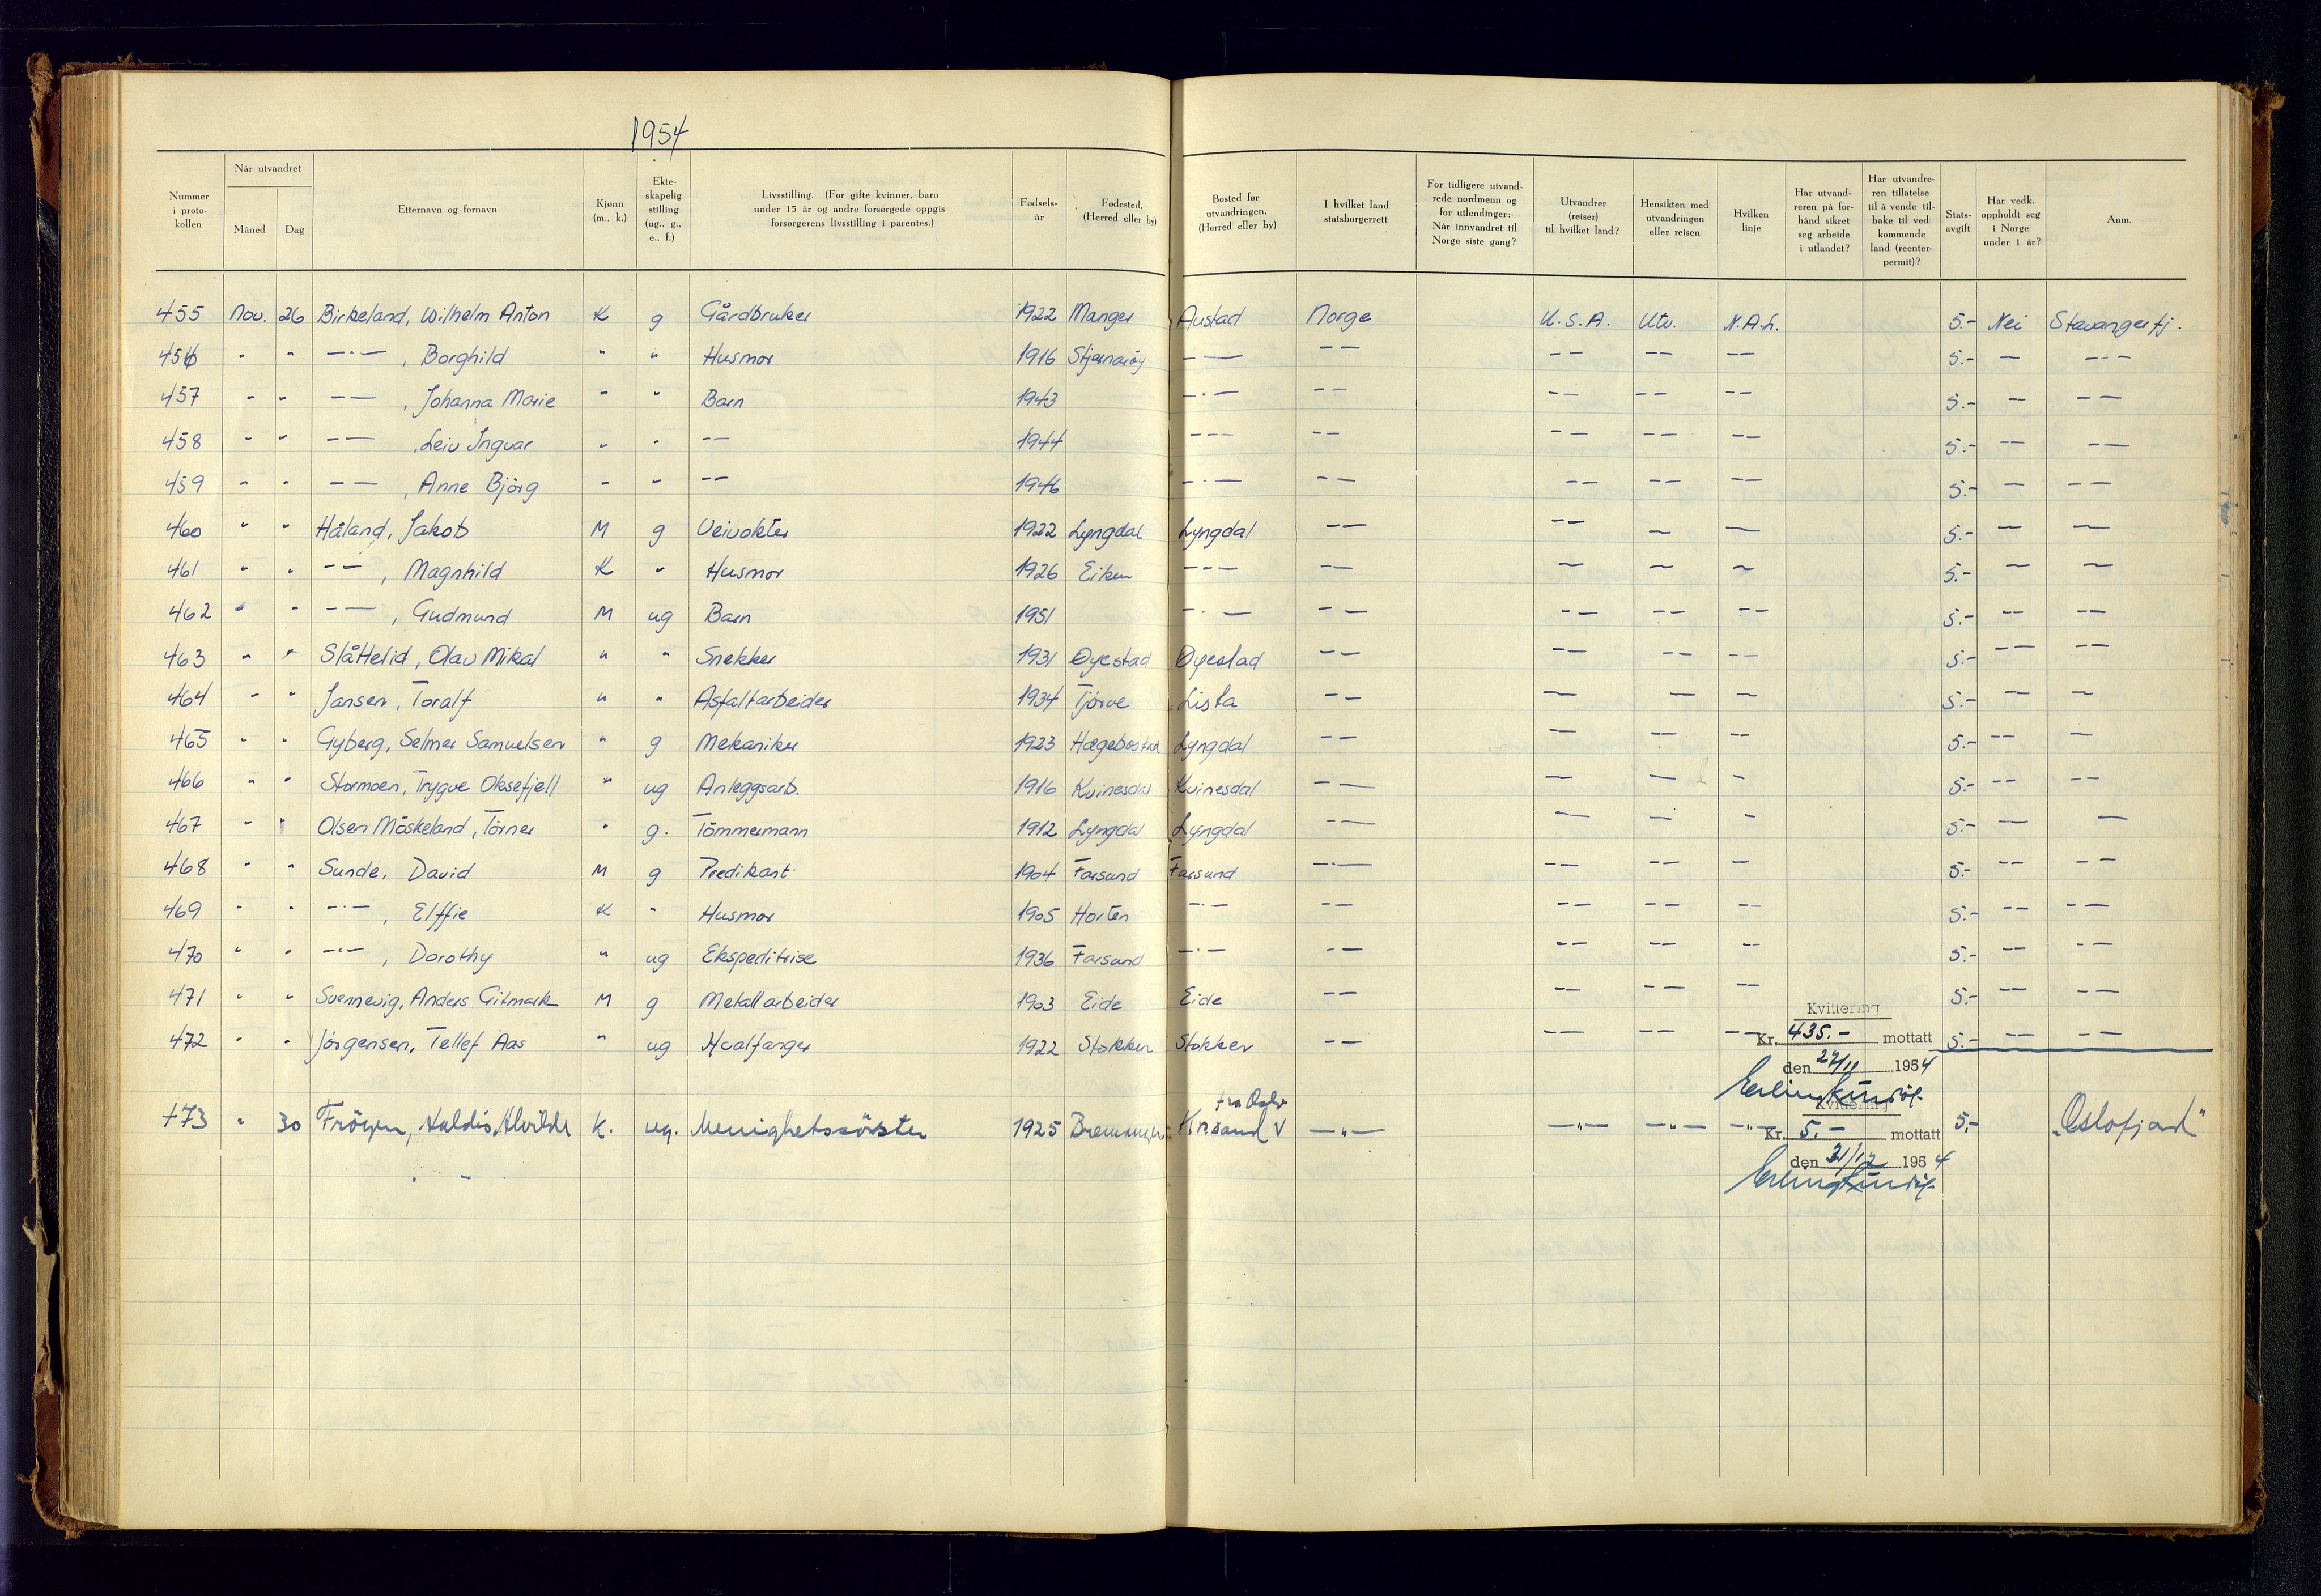 1954
Nummer i proto-kollen | Når utvandret Måned Dag | Etternavn og fornavn | Kjønn (m., k.) | Ekte-skapelig stilling (ug., g., e., f.) | Livsstilling. (For gifte kvinner, barn under 15 år og andre forsørgede oppgis forsørgerens livsstilling i parentes.) | Fødsels-år | Fødested. (Herred eller by) | Bosted før utvandringen. (Herred eller by) | I hvilket land statsborgerrett | For tidligere utvand-rede nordmenn og for utlendinger: Når innvandret til Norge siste gang? | Utvandrer (reiser) til hvilket land? | Hensikten med utvandringen eller reisen | Hvilken linje | Har utvand-reren på for-hånd sikret seg arbeide i utlandet? | Har utvandre-ren tillatelse til å vende til-bake til ved kommende land (reenter-permit)? | Stats-avgift | Har vedk. oppholdt seg i Norge under 1 år? | Anm.
455 Nov. 26 Birkeland, Wilhelm Anton K g Gårdbruker 1922 Manger Austad Norge U.S.A. Utv. N.A.L. 5.- Nei Stavangerfj.
456 " " —·— , Borghild " " Husmor 1916 Stjernarøy —— —— —— —— —— 5.- — —·—
457 " " —— , Johanna Marie " " Barn 1943 —·— —— —— —— —— 5.- — ——
458 " " —— , Leiv Ingvar " " —— 1944 —— —— —— —— —— 5.- —— ——
459 " " —— , Anne Bjørg " " —— 1946 —·— —— —— —— —— 5.- — ——
460 " " Håland, Jakob M g Veivokter 1922 Lyngdal Lyngdal —— —— — — 5.- — —
461 " " —— , Magnhild K " Husmor 1926 Eiken —— —— — — — 5.- — —
462 " " —— , Gudmund M ug Barn 1951 —·— —— —— —— —— 5.- —— ——
463 " " Slåttelid, Olav Mikal " " Snekker 1931 Øyestad Øyestad —— —— —— —— 5.- —— ——
464 " " Jansen, Toralf " " Asfaltarbeider 1934 Tjørve Lista —— — — — 5.- — —
465 " " Gyberg, Selmer Samuelsen " g Mekaniker 1923 Hægebostad Lyngdal —— —— —— —— 5.- —— —
466 " " Stormoen, Trygve Oksefjell " ug Anleggsarb. 1916 Kvinesdal Kvinesdal —— — — — 5.- —— ——
467 " " Olsen Måskeland, Törner " g. Tömmermann 1912 Lyngdal Lyngdal —— — — — 5.- — —
468 " " Sunde, David M g Predikant 1904 Farsund Farsund —·— —— —— — 5.- —— ——
469 " " —·— , Elffie K " Husmor 1905 Horten —·— —— —— —— —— 5.- —— ——
470 " " —·— , Dorothy " ug Ekspeditrise 1936 Farsund —·— —— —— —— —— 5.- —— ——
471 " " Svennevig, Anders Gitmark M g Metallarbeider 1903 Eide Eide —— —— —— —— 5.- —— ——
Kvittering
472 " " Jörgensen, Tellef Aas " ug Hvalfanger 1922 Stokken Stokken —— —— —— —— Kr. 435.- mottatt 5.- —— ——
den 27/11 1954
fra Oslo
Kvittering
473 " 30 Fröyen, Haldis Alvilde K. ug. Menighetssöster 1925 Kr.sand V —"— —"— —"— —"— Kr. 5.- mottatt 5,- "Oslofjord"
den 31/12 1954